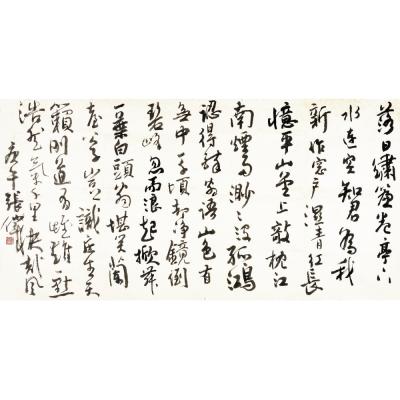 落日繡簾卷亭下
水連空知君為我
新作窗戶濕青紅長
憶平山堂上敧枕江
南煙雨渺渺沒孤鴻
認得醉翁語山色有
無中千頃都净鏡倒
碧峰忽而浪起掀舞
一葉白頭翁堪笑蘭
臺公子豈識莊生天
籟剛道有雌雄一點
浩然氣千里快哉風
庚午張